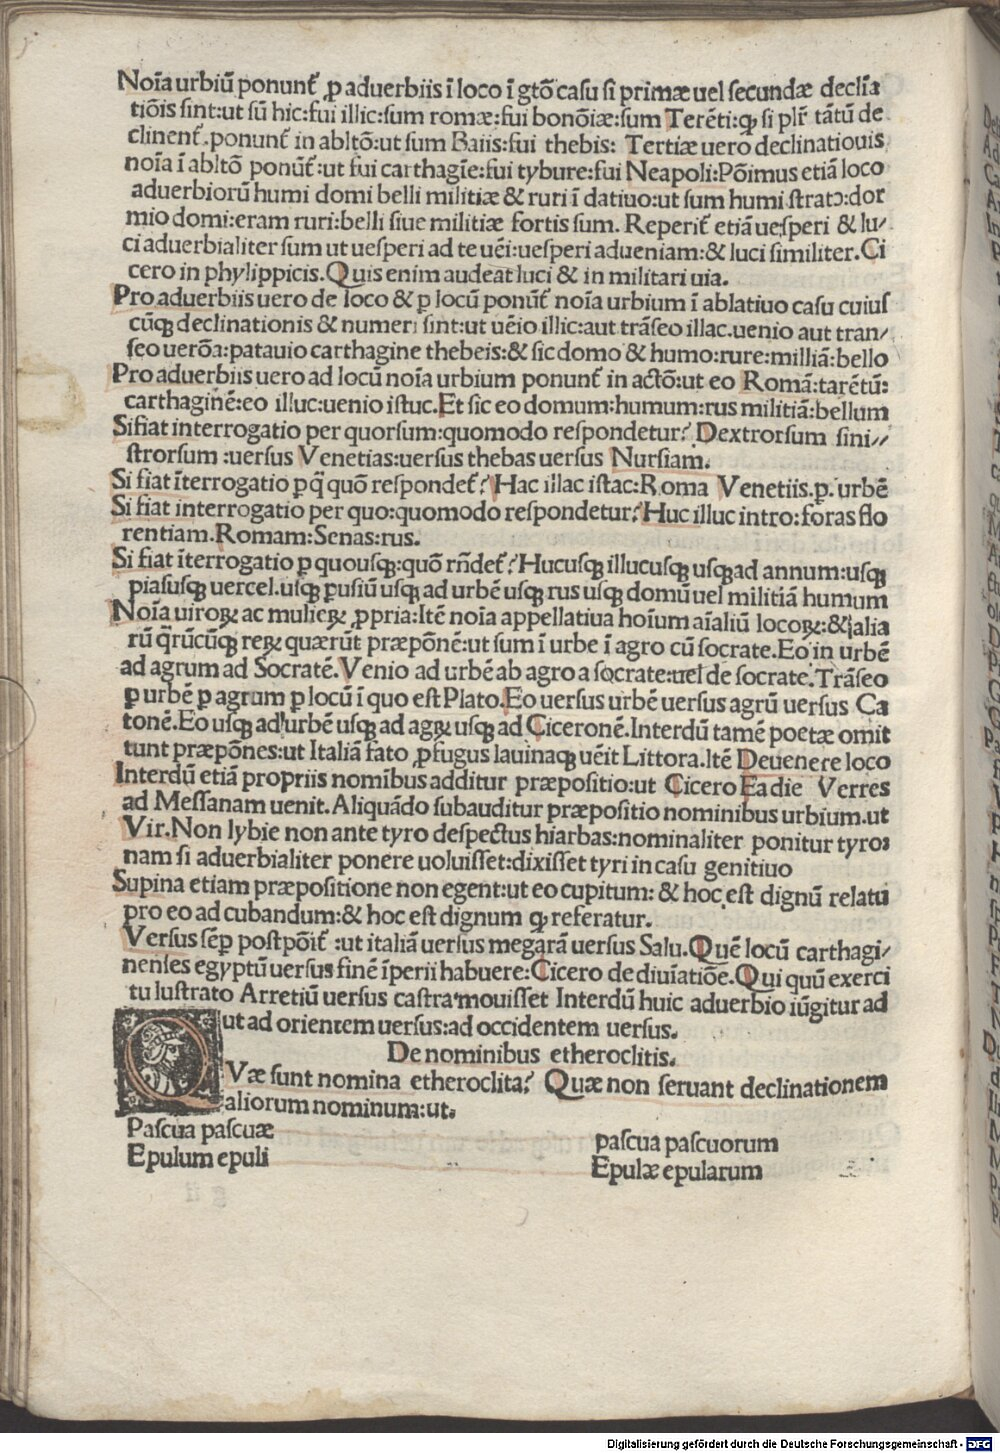 Noīa urbiū ponunt̄ ꝓ aduerbiis ī loco ī gtō casu si primæ uel secundæ declīa
tiōis sint:ut sū hic:fui illic:sum romæ:fui bonōiæ:sum Terēti:ꝙ si plr̄ tātū de
clinent̄.ponunt̄ in abltō:ut sum Baiis:fui thebis: Tertiæ uero declinatiouis
noīa ī abltō ponūt̄:ut fui carthagīe:fui tybure:fui Neapoli:Pōimus etiā loco
aduerbiorū humi domi belli militiæ & ruri ī datiuo:ut sum humi stratꝰ:dor
mio domi:eram ruri:belli siue militiæ fortis sum. Reperit̄ etiā uesperi & lu/
ci aduerbialiter sum ut uesperi ad te uēi:uesperi adueniam:& luci similiter.Ci
cero in phylippicis.Quis enim audeat luci & in militari uia.
Pro aduerbiis uero de loco & ꝑ locū ponūt̄ noīa urbium ī ablatiuo casu cuius
cūqꝫ declinationis & numeri sint:ut uēio illic:aut trāseo illac.uenio aut tran/
seo uerōa:patauio carthagine thebeis:& sic domo & humo:rure:milliā:bello
Pro aduerbiis uero ad locū noīa urbium ponunt̄ in actō:ut eo Romā:tarētū:
carthaginē:eo illuc:uenio istuc.Et sic eo domum:humum:rus militiā:bellum
Si fiat interrogatio per quorsum:quomodo respondetur? Dextrorsum sini//
strorsum :uersus Venetias:uersus thebas uersus Nursiam.
Si fiat īterrogatio ꝑ q̄ quō respondet̄? Hac illac istac:Roma Venetiis.ꝑ urbē
Si fiat interrogatio per quo:quomodo respondetur? Huc illuc intro:foras flo
rentiam.Romam:Senas:rus.
Si fiat īterrogatio ꝑ quousqꝫ:quō rn̄det̄? Hucusqꝫ illucusqꝫ usqꝫ ad annum:usqꝫ
piasusqꝫ uercel.usqꝫ ꝑusiū usqꝫ ad urbē usqꝫ rus usqꝫ domū uel militiā humum
Noīa uiroꝝ ac mulieꝝ ꝓpria:Itē noīa appellatiua hoīum aīaliū locoꝝ:& alia
rū q̄rūcūqꝫ reꝝ quærūt præpōnē:ut sum ī urbe ī agro cū socrate.Eo in urbē
ad agrum ad Socratē.Venio ad urbē ab agro a socrate:uel de socrate.Trāseo
ꝑ urbē ꝑ agrum ꝑ locū ī quo est Plato.Eo uersus urbē uersus agrū uersus Ca
tonē.Eo usqꝫ ad urbē usqꝫ ad agꝝ usqꝫ ad Ciceronē.Interdū tamē poetæ omit
tunt præpōnes:ut Italiā fato ꝓfugus lauinaqꝫ uēit Littora.Itē Deuenere loco
Interdū etiā propriis nomībus additur præpositio:ut Cicero Ea die Verres
ad Messanam uenit.Aliquādo subauditur præpositio nominibus urbium.ut
Vir.Non lybie non ante tyro despectus hiarbas:nominaliter ponitur tyro:
nam si aduerbialiter ponere uoluisset:dixisset tyri in casu genitiuo
Supina etiam præpositione non egent:ut eo cupitum: & hoc est dignū relatu
pro eo ad cubandum:& hoc est dignum ꝙ referatur.
Versus sēꝑ postpōit̄ :ut italiā uersus megarā uersus Salu.Quē locū carthagi/
nenses egyptū uersus finē īperii habuere:Cicero de diuīatiōe.Qui quū exerci
tu lustrato Arretiū uersus castra mouisset Interdū huic aduerbio iūgitur ad
ut ad orientem uersus:ad occidentem uersus.
De nominibus etheroclitis.
QVæ sunt nomina etheroclita? Quæ non seruant declinationem
aliorum nominum:ut.
Pascua pascuæ pascua pascuorum
Epulum epuli Epulæ epularum
Digitalisierung gefördert durch die Deutsche Forschungsgemeinschaft - DFG